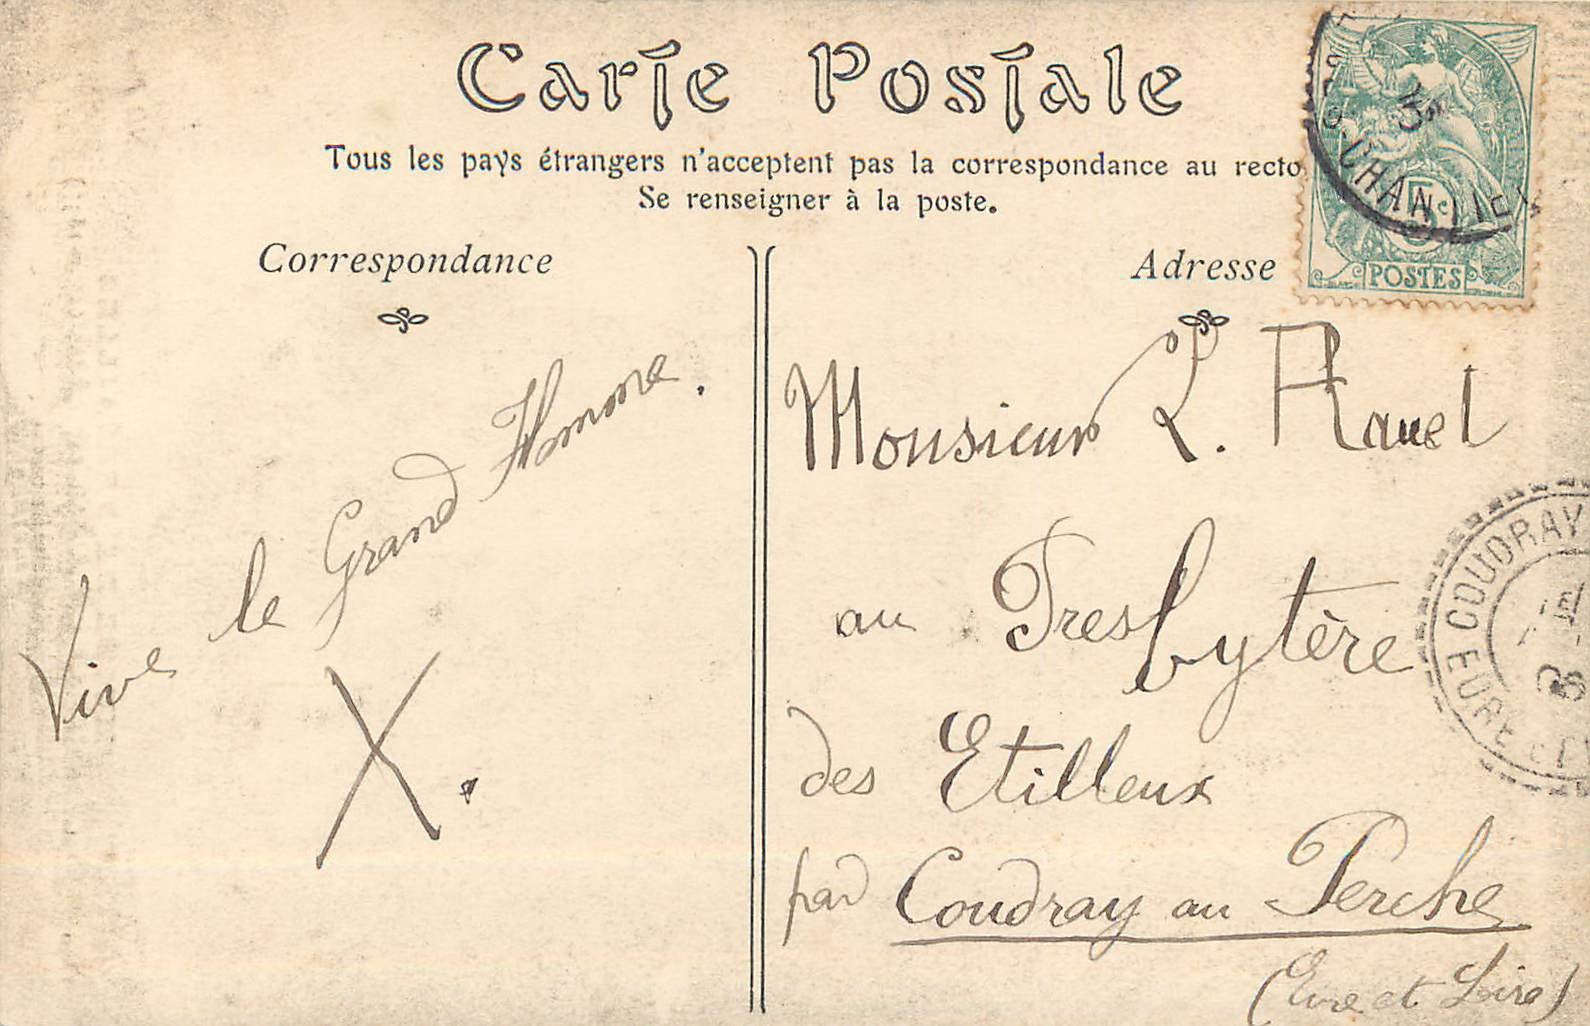 Carte Postale
Tous les pays étrangers n'acceptent pas la correspondance au recto
Se renseigner à la poste.
Correspondance
Adresse
5c
POSTES
Vive le Grand Homme.
X.
Monsieur L. Ravel
au Presbytère
des Etilleux
par Coudray au Perche
(Eure et Loire)
COUDRAY
EURE ET L